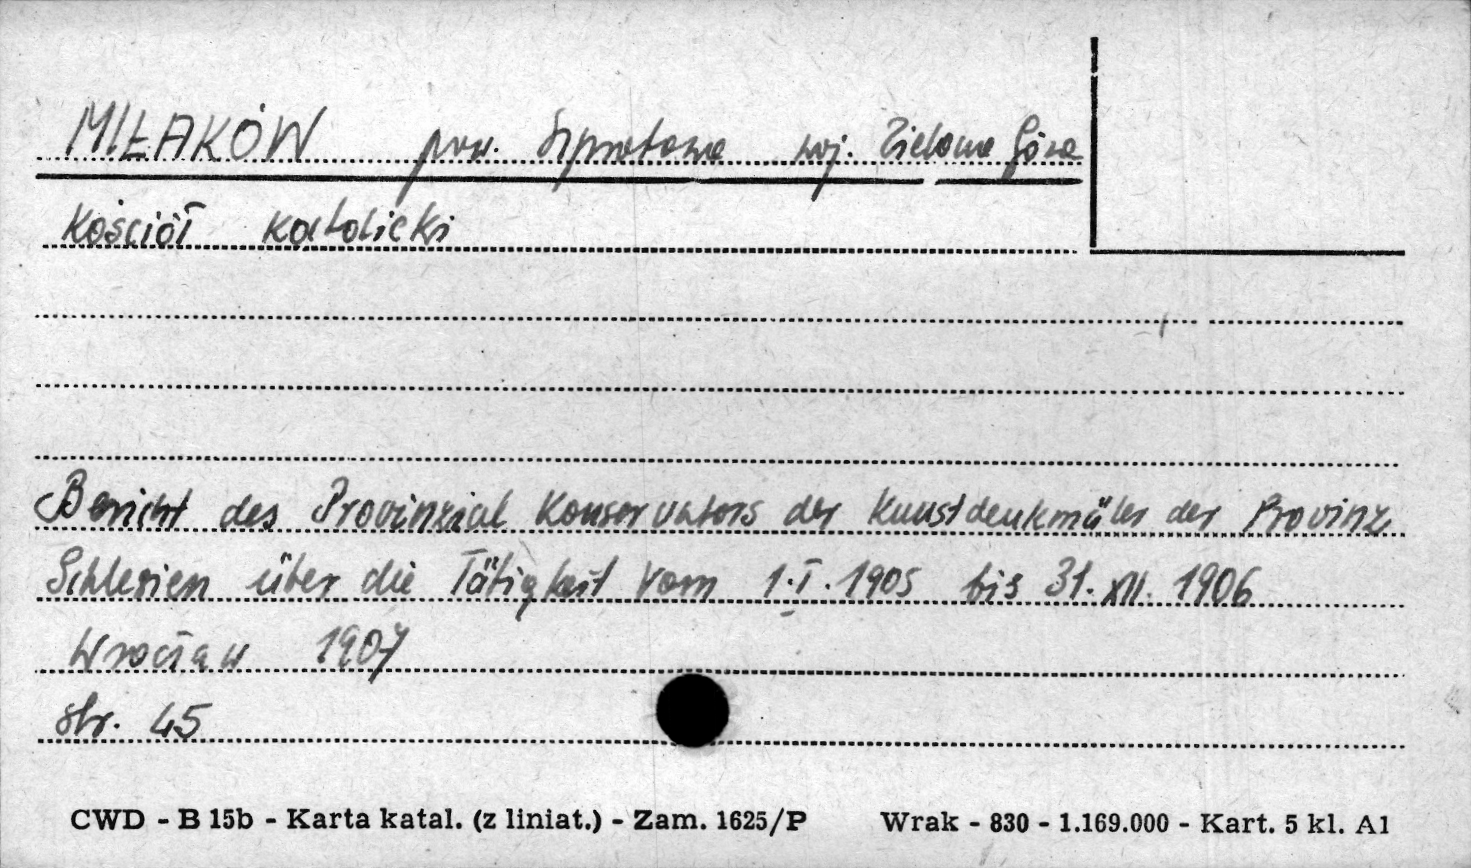 MIŁAKÓW pow. Szprotawa woj. Zielona Góra
Kościół katolicki
Bericht des Provinzial Konservators der Kunstdenkmäler der Provinz
Schlesien über die Tätigkeit vom 1.I.1905 bis 31.XII.1906
Wrocław 1907
str. 45
CWD - B 15b - Karta katal. (z liniat.) - Zam. 1625/P Wrak - 830 - 1.169.000 - Kart. 5 kl. A1